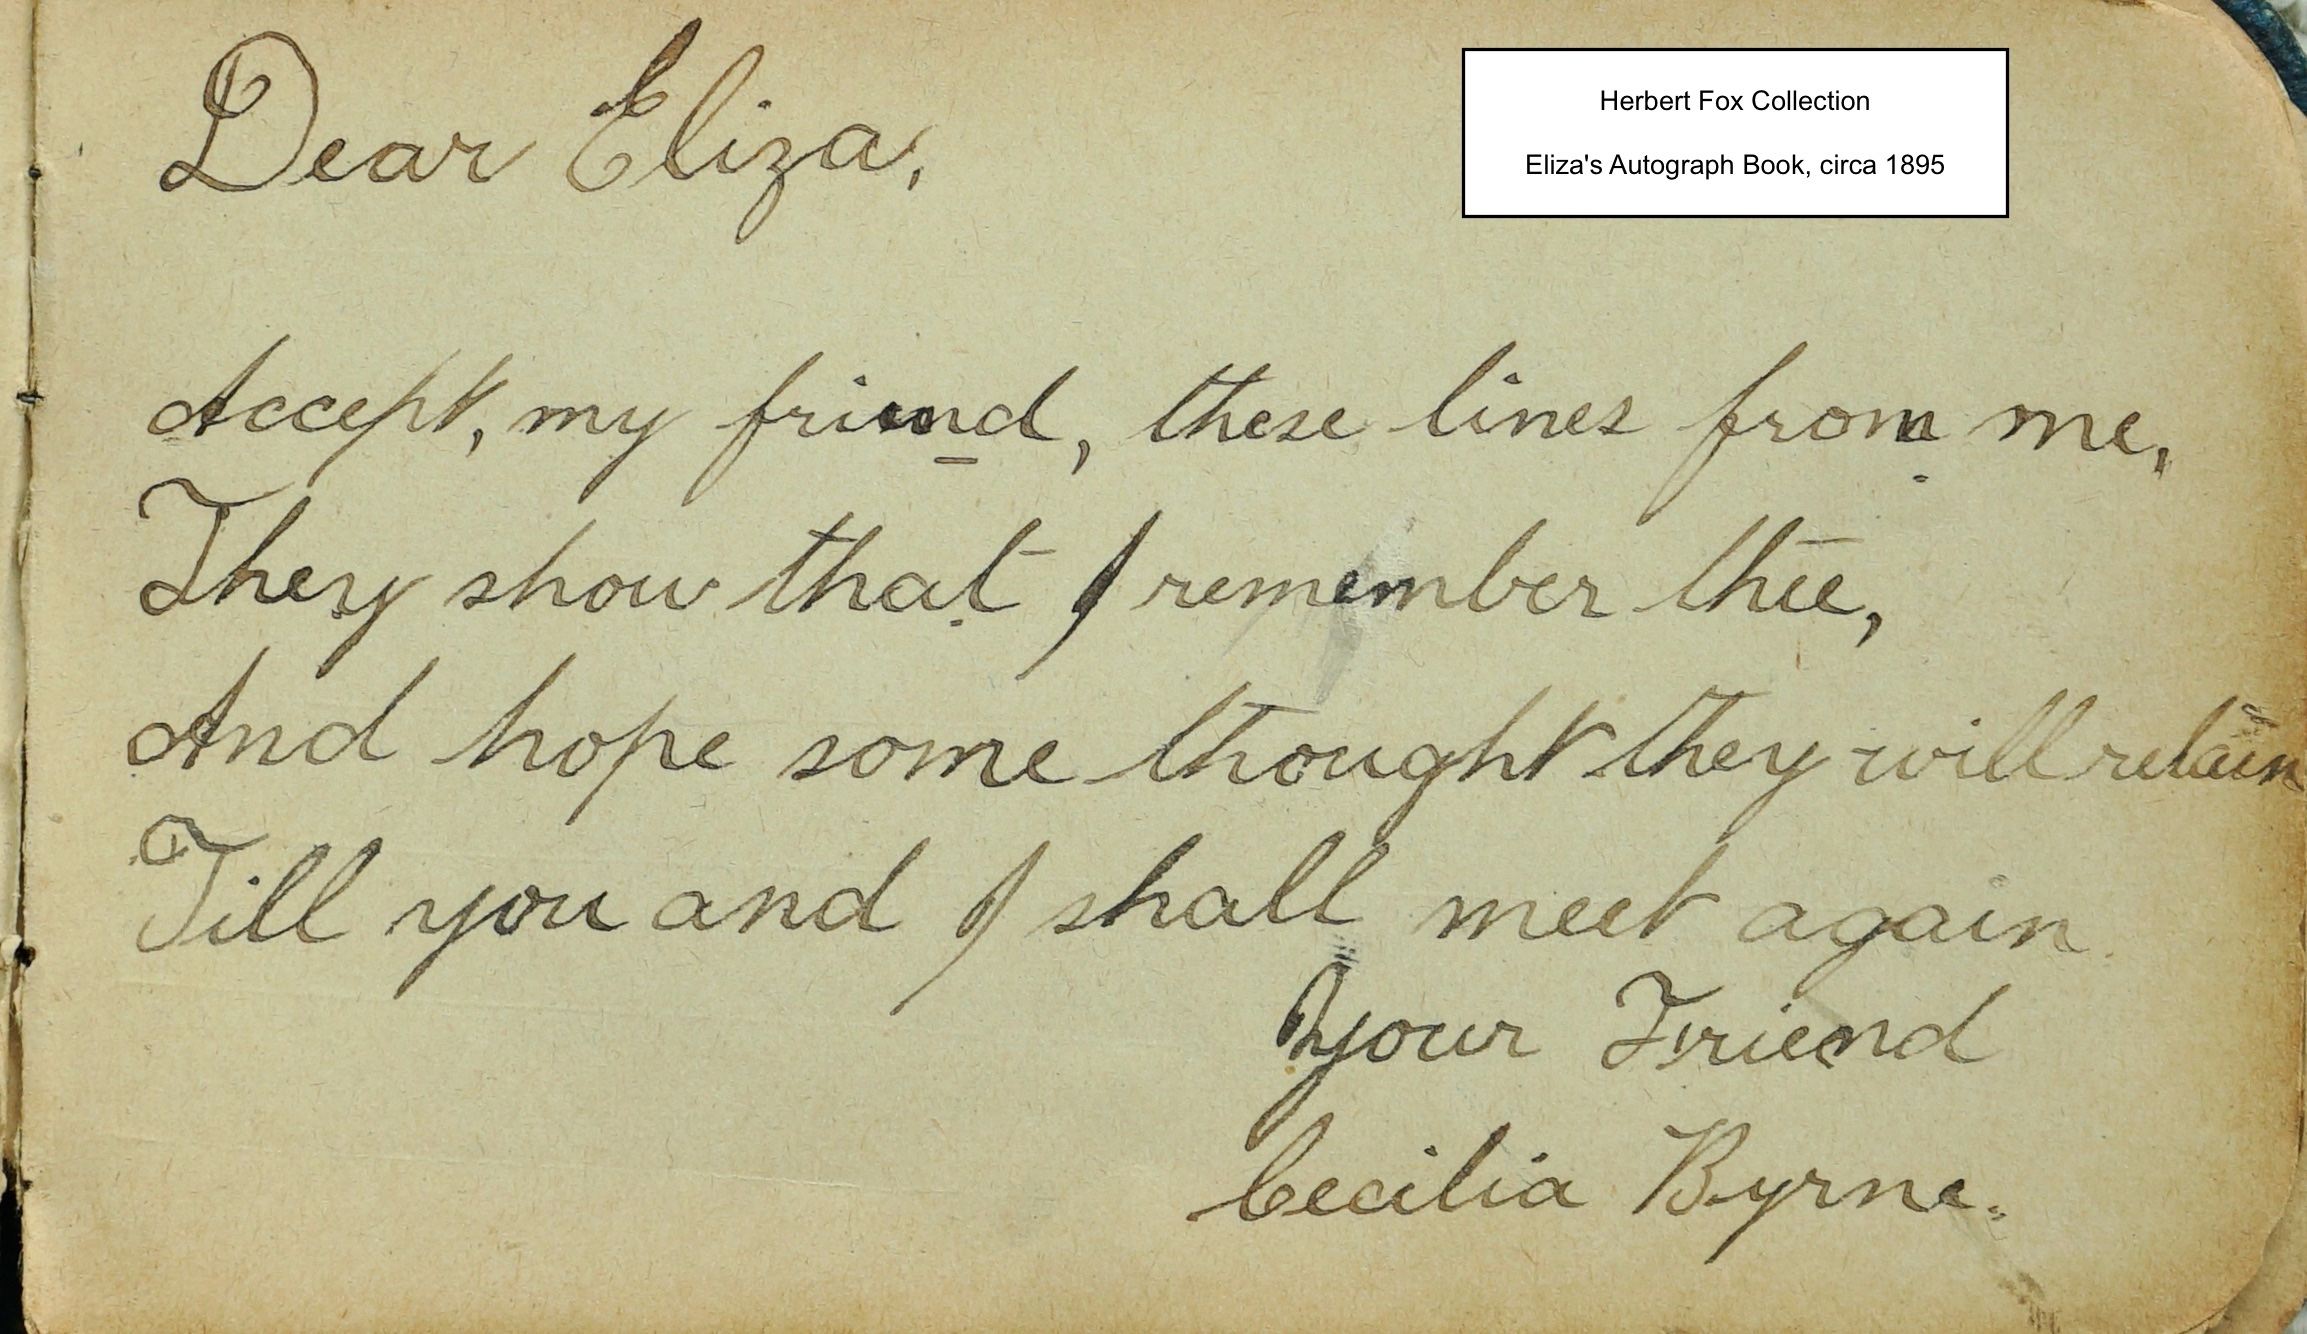 Dear Eliza,
Herbert Fox Collection
Eliza's Autograph Book, circa 1895
Accept, my friend, these lines from me,
They show that I remember thee,
And hope some thought they will retain
Till you and I shall meet again.
Your Friend
Cecilia Byrne.